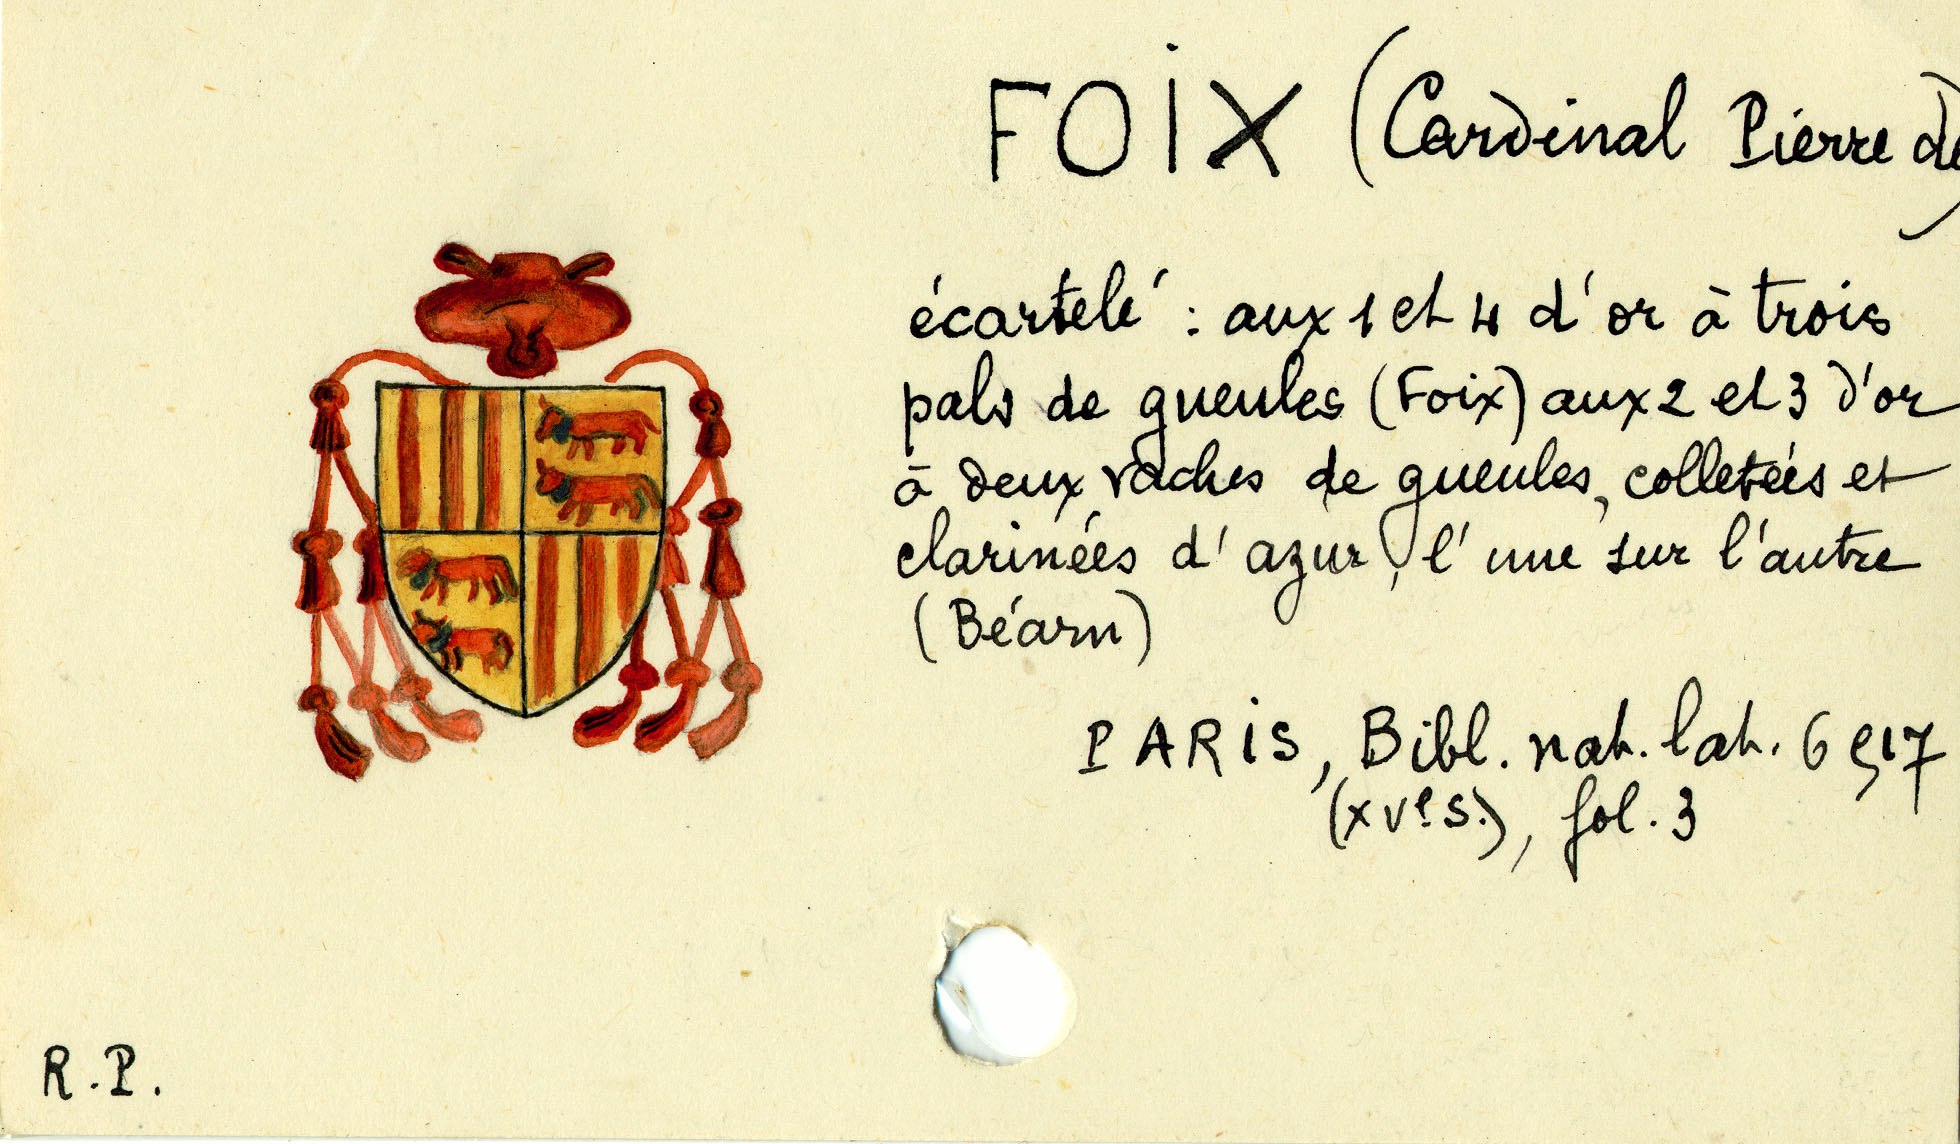 FOIX (Cardinal Pierre de)
écartelé : aux 1 et 4 d'or à trois
pals de gueules (Foix) aux 2 et 3 d'or
à deux vaches de gueules, colletées et
clarinées d'azur, l'une sur l'autre
(Béarn)
PARIS, Bibl. nat. lat. 6517
(XVe S.), fol. 3
R.P.